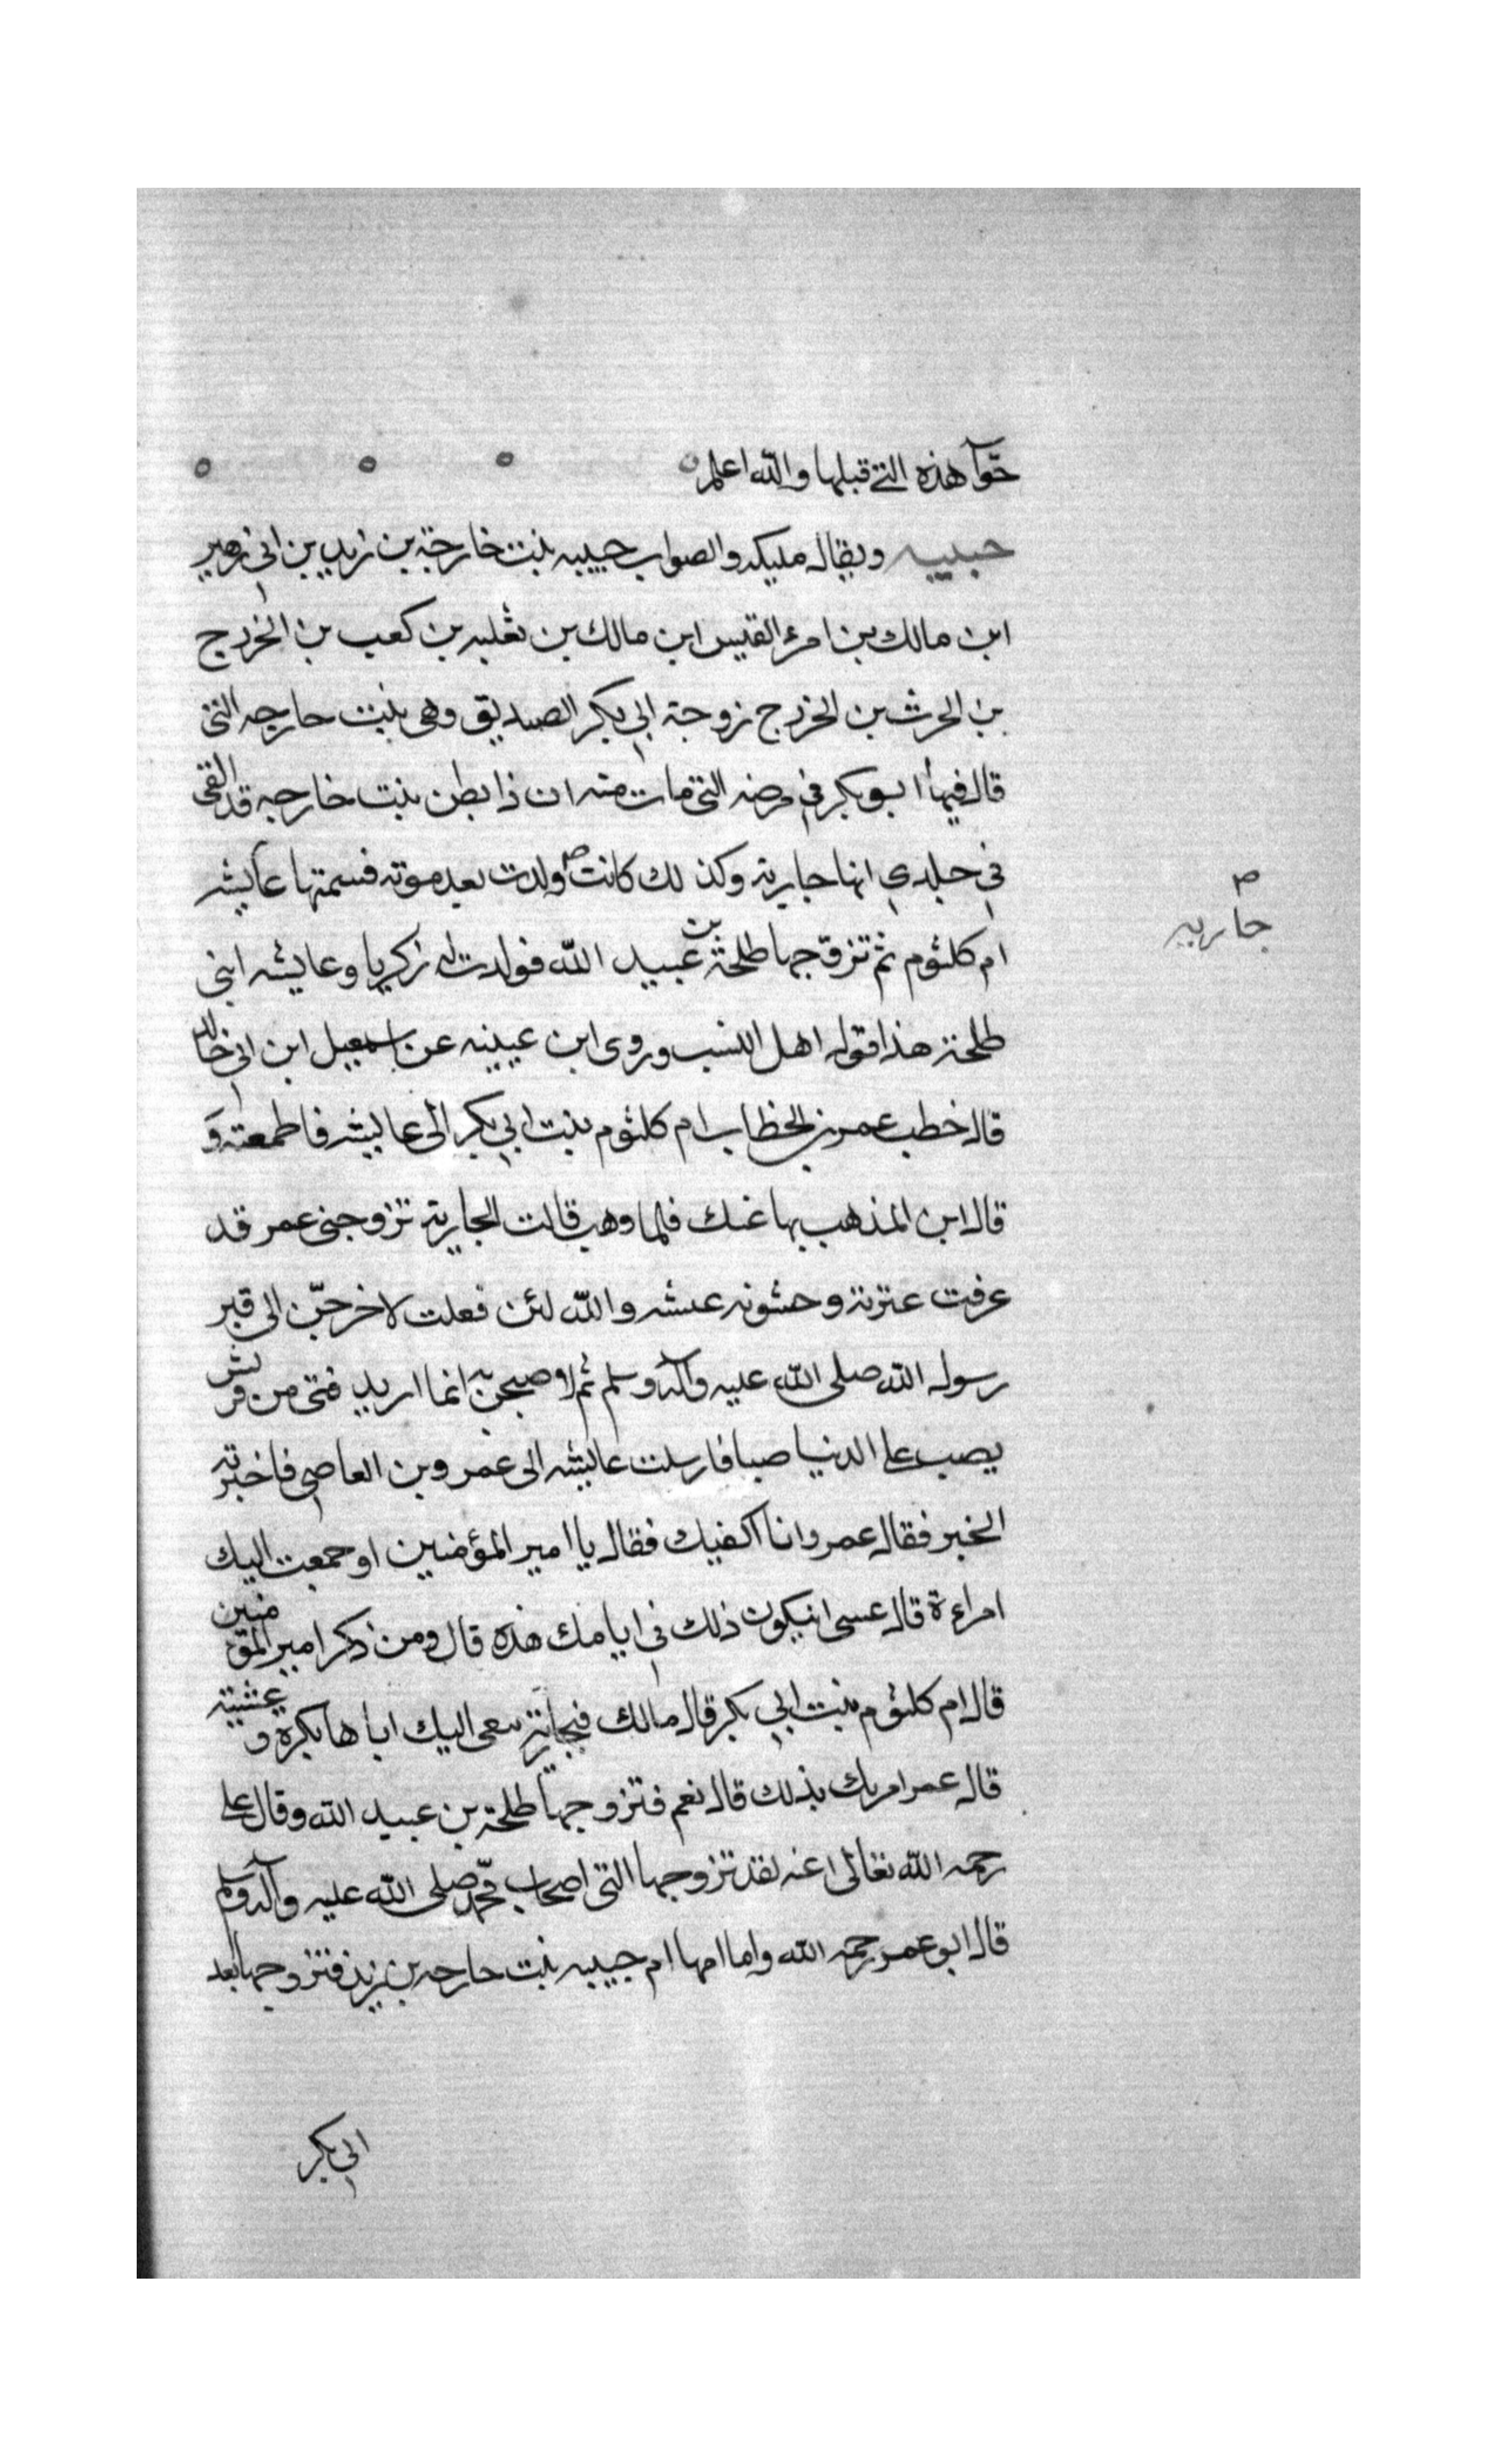 حوآ هذه التى قبلها والله اعلم
حبيبه ويقال مليكه والصواب حبيبه بنت خارجة بن زيد بن ابى زهير
ابن مالك بن امرء القيس ابن مالك بن ثعلبه بن كعب بن الخزرج
بن الحرث بن الخزرج زوجة ابى بكر الصديق وهى بنت حارجه التى
قال فيها ابو بكر فى مرضه التى مات منه ان ذا بطن بنت خارجه قد القى
فى خلدى انها جارية وكذلك كانت ولدت بعد موته فسمتها عايشه
جاريه
ام كلثوم ثم تزوجها طلحة بن عبيد الله فولدت له زكريا وعايشه ابنى
طلحة هذا قول اهل النسب وروى ابن عيينه عن اسمعيل ابن ابى خالد
قال خطب عمر بن الخطاب ام كلثوم بنت ابى بكر الى عايشه فاطمعته و
قال ابن المذهب بها عنك فلما وهب قالت الجارية تزوجنى عمر قد
عرفت عترته وحشونه عيشه والله لئن فعلت لاخرجن الى قبر
رسول الله صلى الله عليه وآله وسلم ثم لاصيحن به انما اريد فتى من قريش
يصب على الدنيا صبا فارسلت عايشه الى عمرو بن العاصى فاخبرته
الخبر فقال عمرو انا اكفيك فقال يا امير المؤمنين او جمعت اليك
امراءة قال عسى انيكون ذلك فى ايامك هذه قال ومن ذكر امير المؤمنين
قال ام كلثوم بنت ابى بكر قال مالك فجارية تنعى اليك اباها بكرة وعشية
قال عمر امرتك بذلك قال نعم فتزوجها طلحة بن عبيد الله وقال على
رحمه الله تعالى عنه لقد تزوجها التى اصحاب محمد صلى الله عليه وآله وسلم
قال ابو عمر رحمه الله واما امها ام حبيبه بنت حارجه بن زيد فتزوجها بعد
ابى بكر